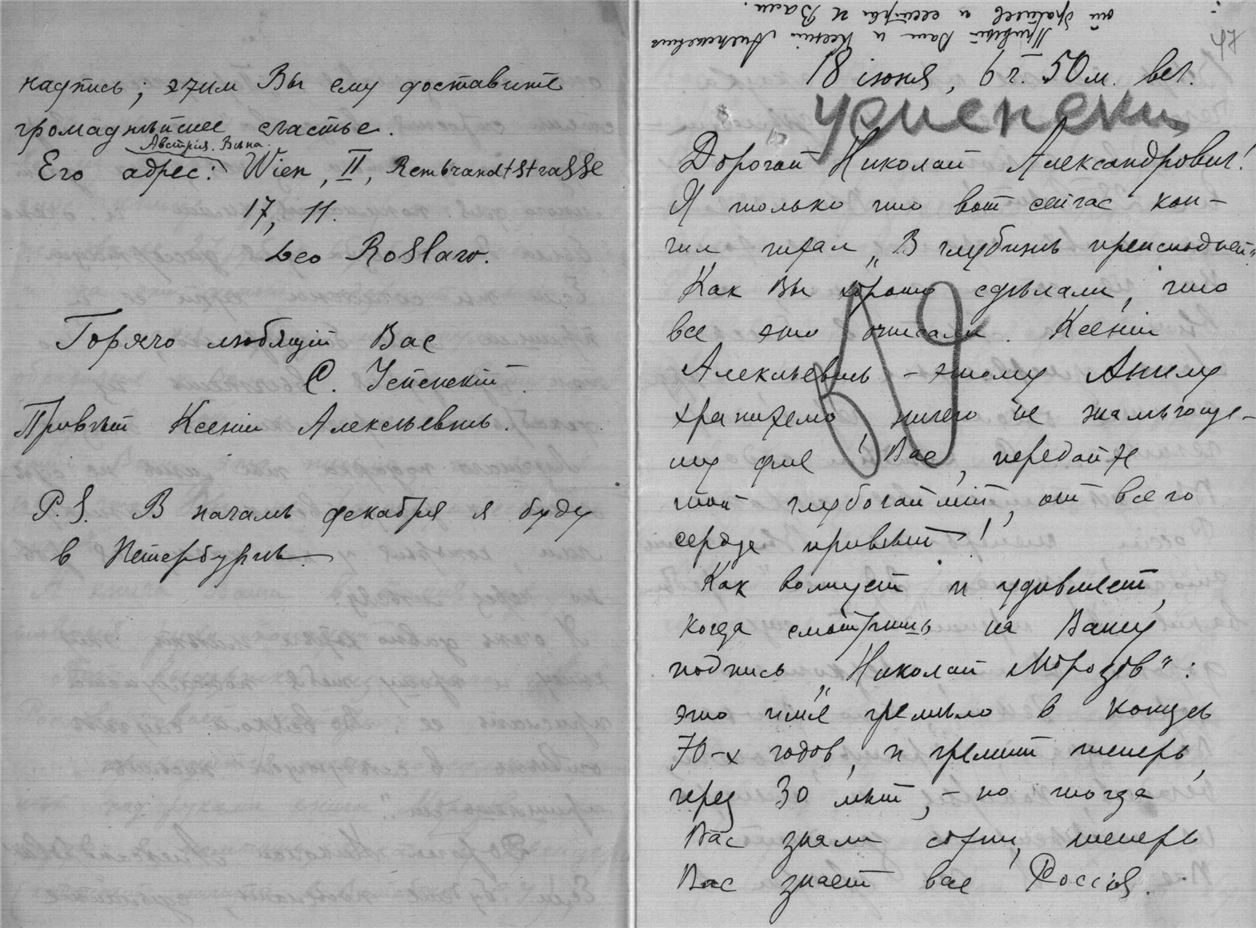 надпись; этим Вы ему доставите
громаднѣйшее счастье.
Австрія. Вѣна.
Его адрес: Wien, II, Rembrandtstrasse
17, 11.
Leo Roslaw.
Горячо любящій Вас
С. Успенскій.
Привѣт Ксеніи Алексѣевнѣ.
P.S. В началѣ декабря я буду
в Петербургѣ.
47
Привѣт Вам и Ксеніи Алексѣевнѣ
от братьев и сестры и Вали.
18 іюня, 6 ч. 50 м. веч.
Успенский
Дорогой Николай Александрович!
Я только что вот сейчас кон-
чил читал „В глубинѣ преисподней“.
Как Вы хорошо сдѣлали, что
все это описали. Ксеніи
Алексѣевнѣ – этому
хранителю ничего не
му для Вас, передайте
мой глубочайшій, от всего
сердца привѣт!
Как волнует и удивляет,
когда смотришь на Вашу
подпись „Николай Морозов“:
это имя гремѣло в концѣ
70-х годов, и гремит теперь,
через 30 лѣт, – но тогда
Вас знали сотни, теперь
Вас знает вся Россія.